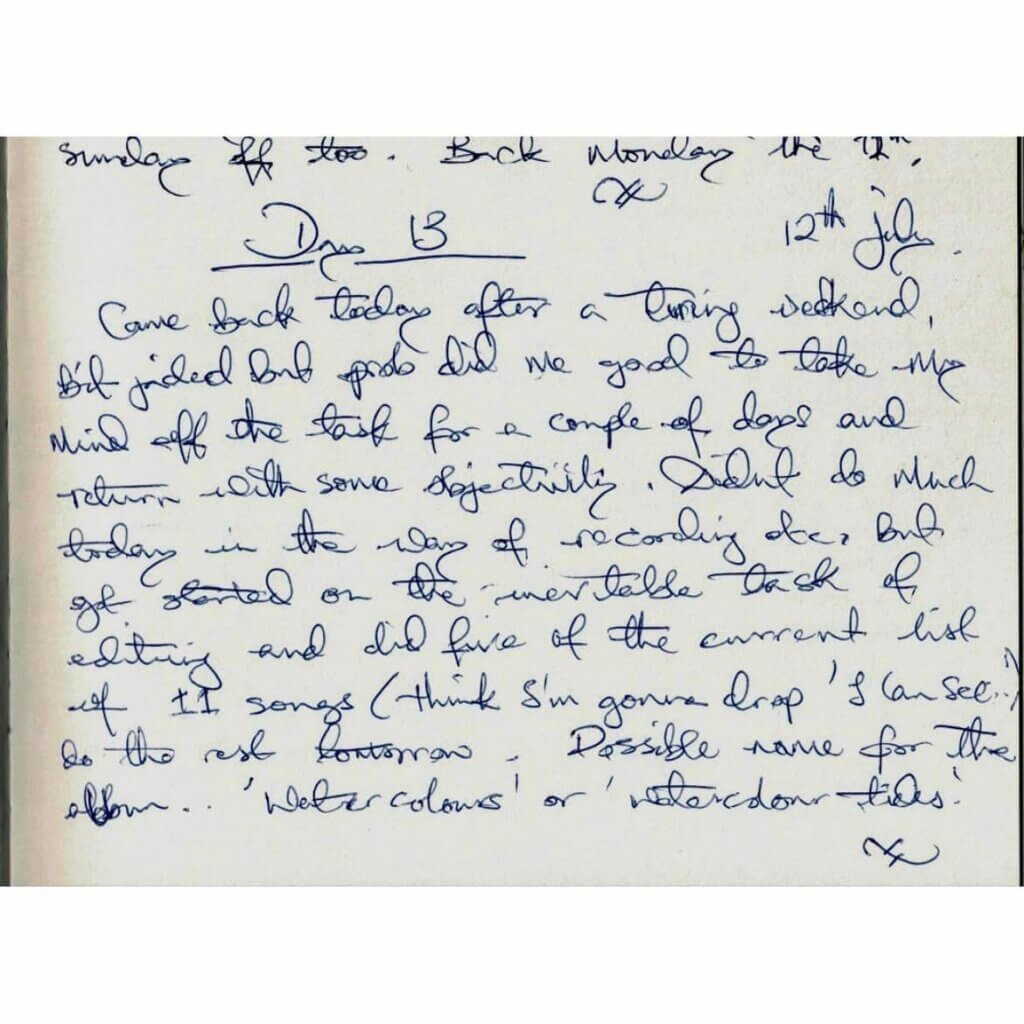 Sunday off too. Back Monday the 12th.
Day 13
12th July.
Came back today after a tiring weekend,
bit jaded but prob did me good to take my
mind off the task for a couple of days and
return with some objectivity. Didn't do much
today in the way of recording etc, but
got started on the inevitable task of
editing and did five of the current list
of 11 songs (think I'm gonna drop 'I Can See..')
do the rest tomorrow. Possible name for the
album.. 'Watercolours' or 'watercolour tides'.